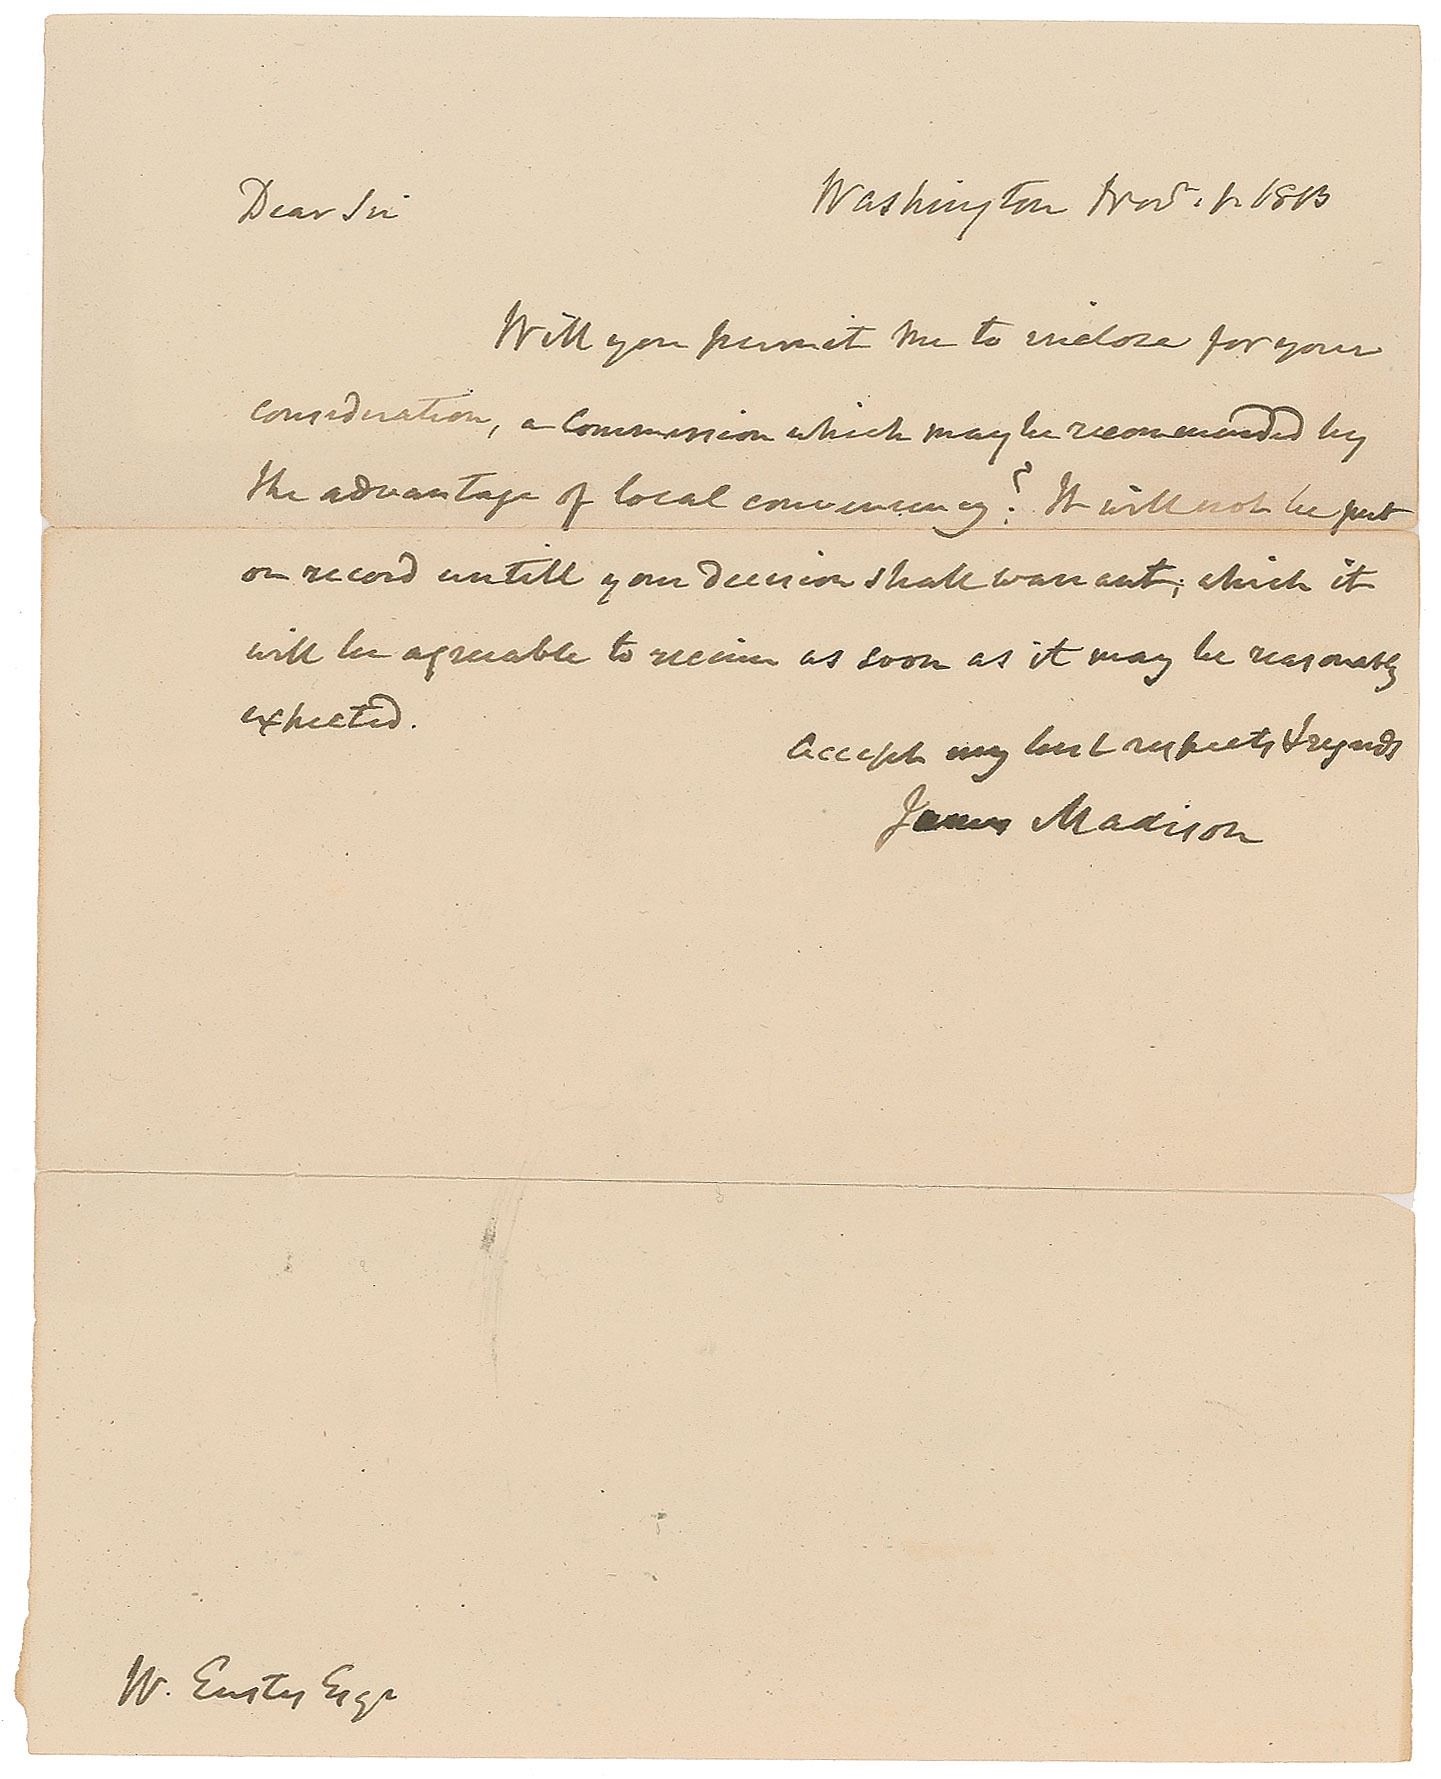 Dear Sir
Washington Novr. 1. 1813
Will you permit me to inclose for your
consideration, a Commission which may be recommended by
the advantage of local conveniency? It will not be put
on record untill your decision shall warrant; which it
will be agreeable to receive as soon as it may be reasonably
expected.
Accept my best respects & regards
James Madison
W. Eustis Esqr